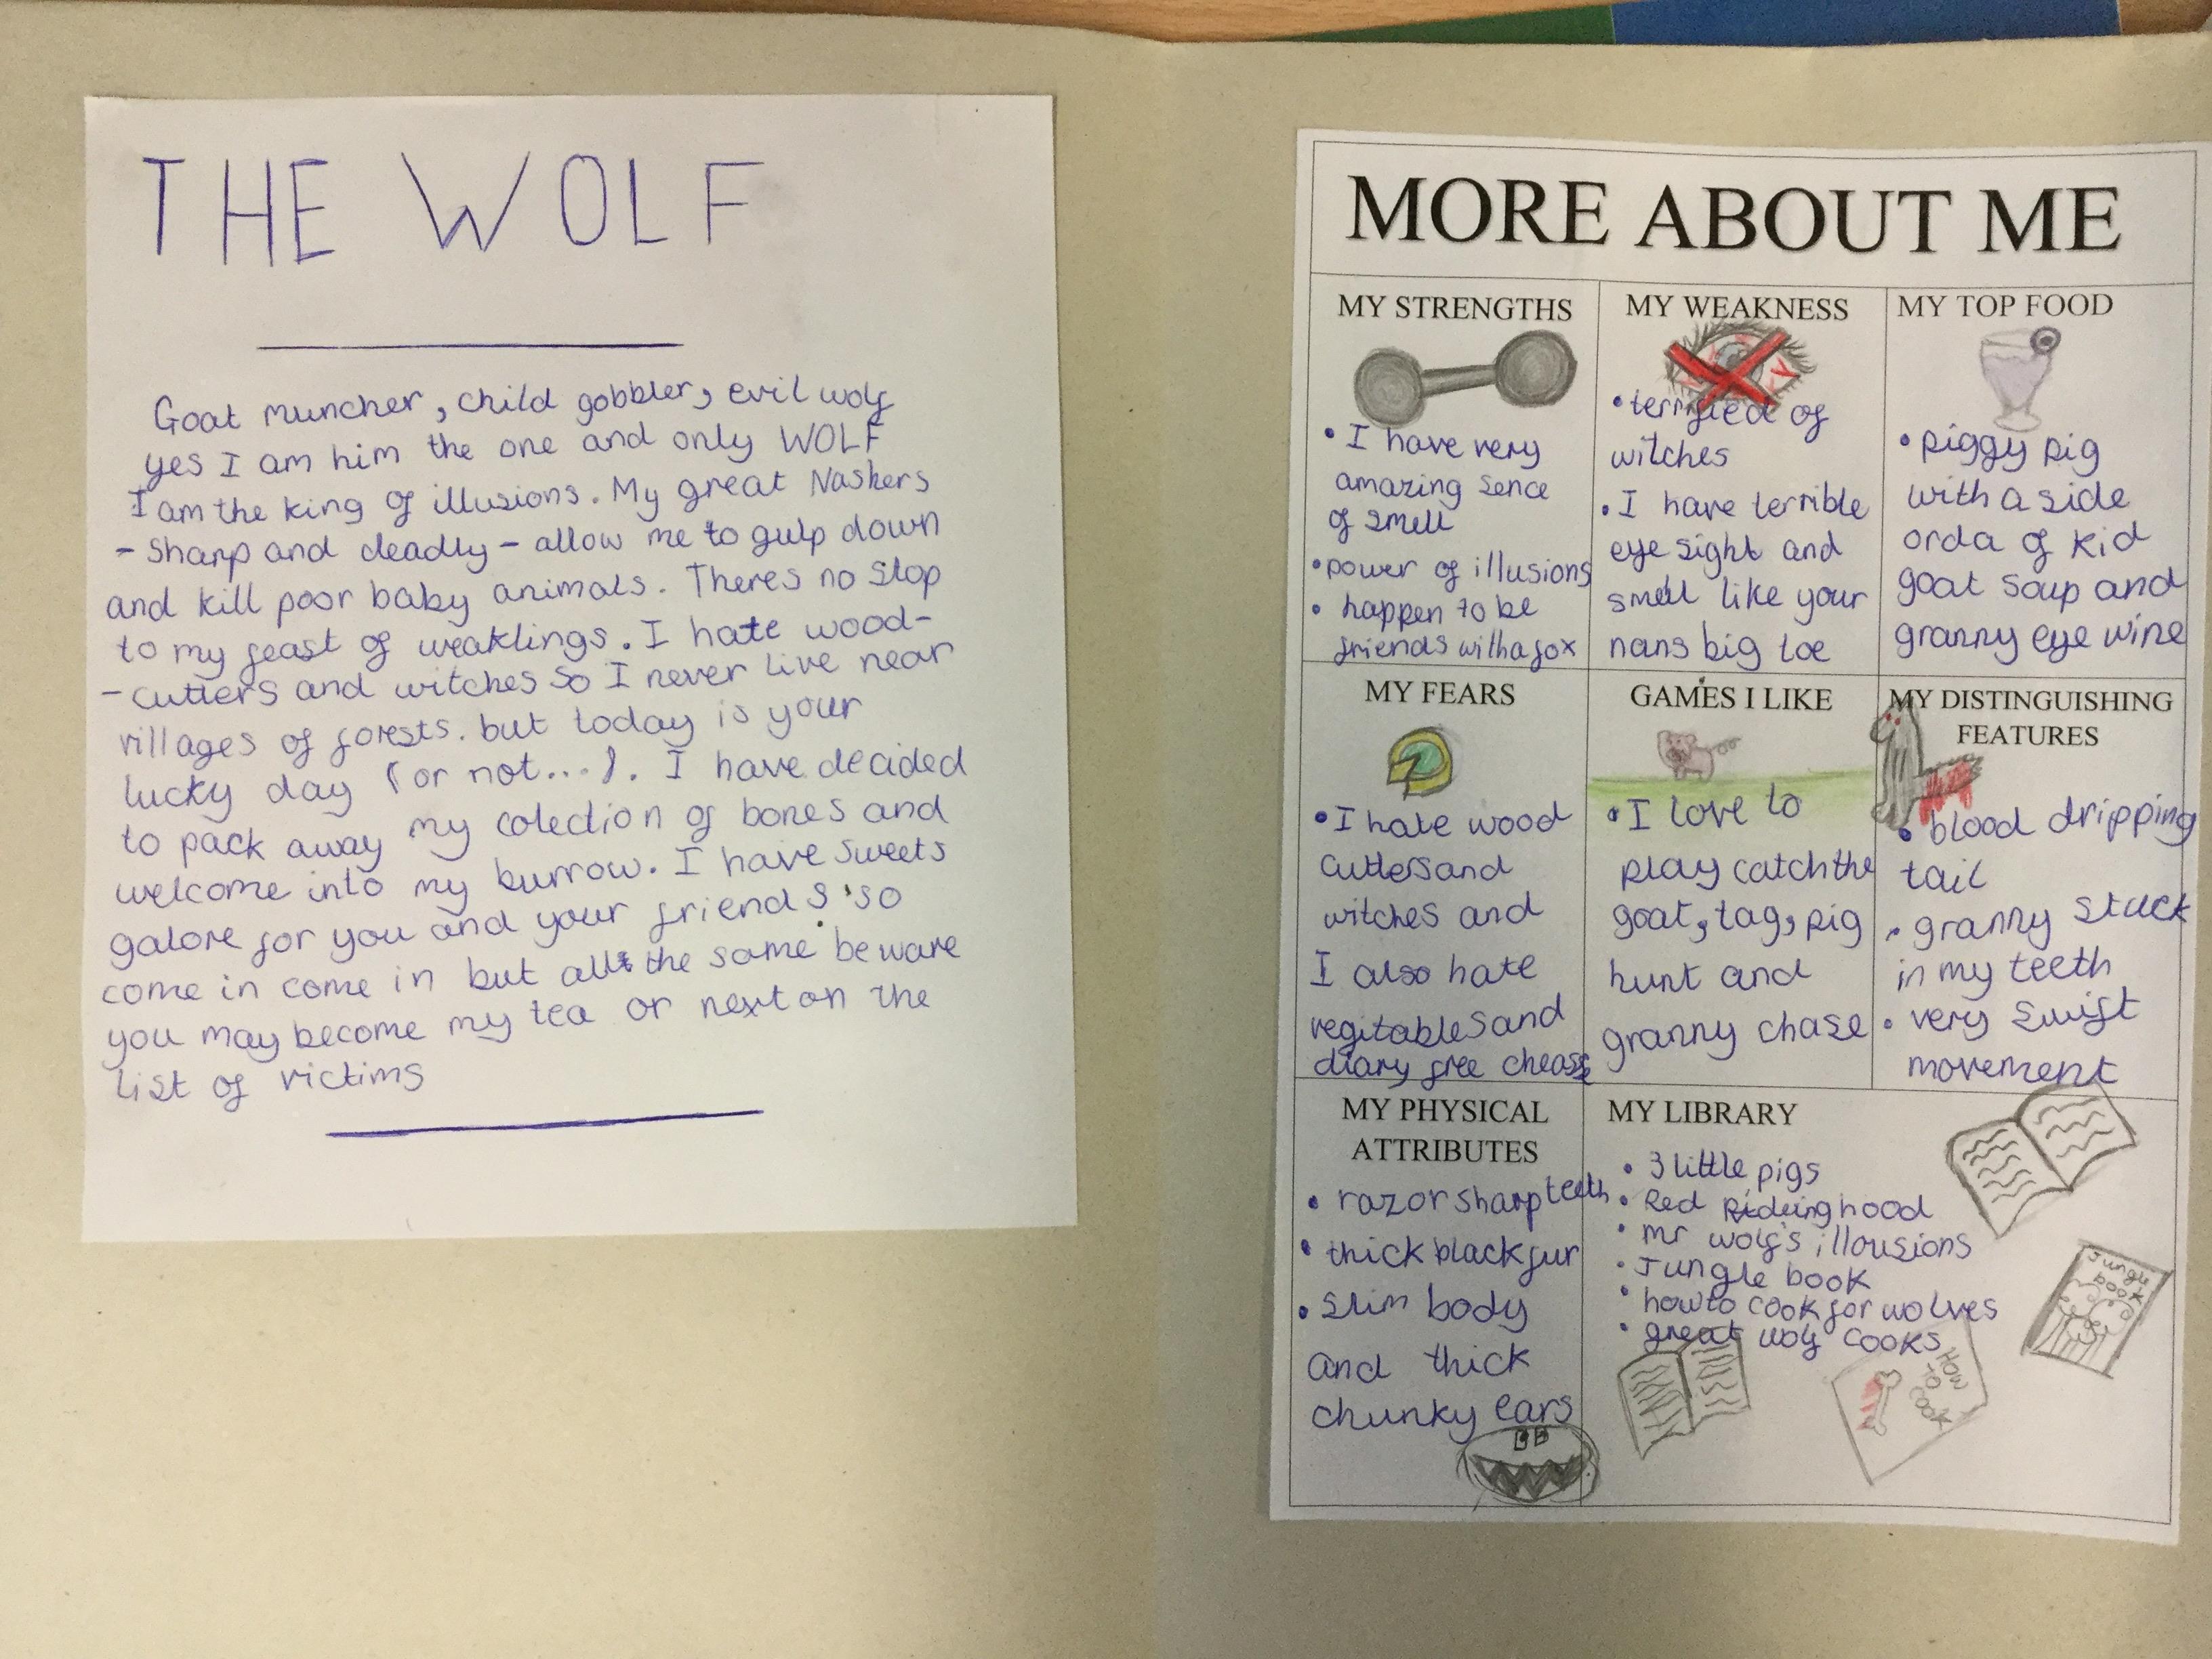 THE WOLF
Goat muncher, child gobbler, evil wolf
yes I am him the one and only WOLF
I am the king of illusions. My great Nashers
- sharp and deadly - allow me to gulp down
and kill poor baby animals. Theres no stop
to my feast of weaklings. I hate wood-
- cutters and witches so I never live near
villages of forests. but today is your
lucky day (or not...). I have decided
to pack away my colection of bones and
welcome into my burrow. I have sweets
galore for you and your friends so
come in come in but all the same beware
you may become my tea or next on the
list of victims
MORE ABOUT ME
MY STRENGTHS
• I have very
amazing sence
of smell
• power of illusions
• happen to be
friends with a fox
MY WEAKNESS
• terrified of
witches
• I have terrible
eye sight and
smell like your
nans big toe
MY TOP FOOD
• piggy pig
with a side
orda of kid
goat soup and
granny eye wine
MY FEARS
• I hate wood
cutters and
witches and
I also hate
vegitables and
diary free chease
GAMES I LIKE
• I love to
play catch the
goat, tag, pig
hunt and
granny chase
MY DISTINGUISHING
FEATURES
• blood dripping
tail
• granny stuck
in my teeth
• very swift
movement
MY PHYSICAL
ATTRIBUTES
• razor sharp teeth
• thick black fur
• slim body
and thick
chunky ears
MY LIBRARY
• 3 little pigs
• Red Rideing hood
• mr wolf's illousions
• Jungle book
• how to cook for wolves
• great wolf cooks
Jungle
book
HOW
TO
COOK